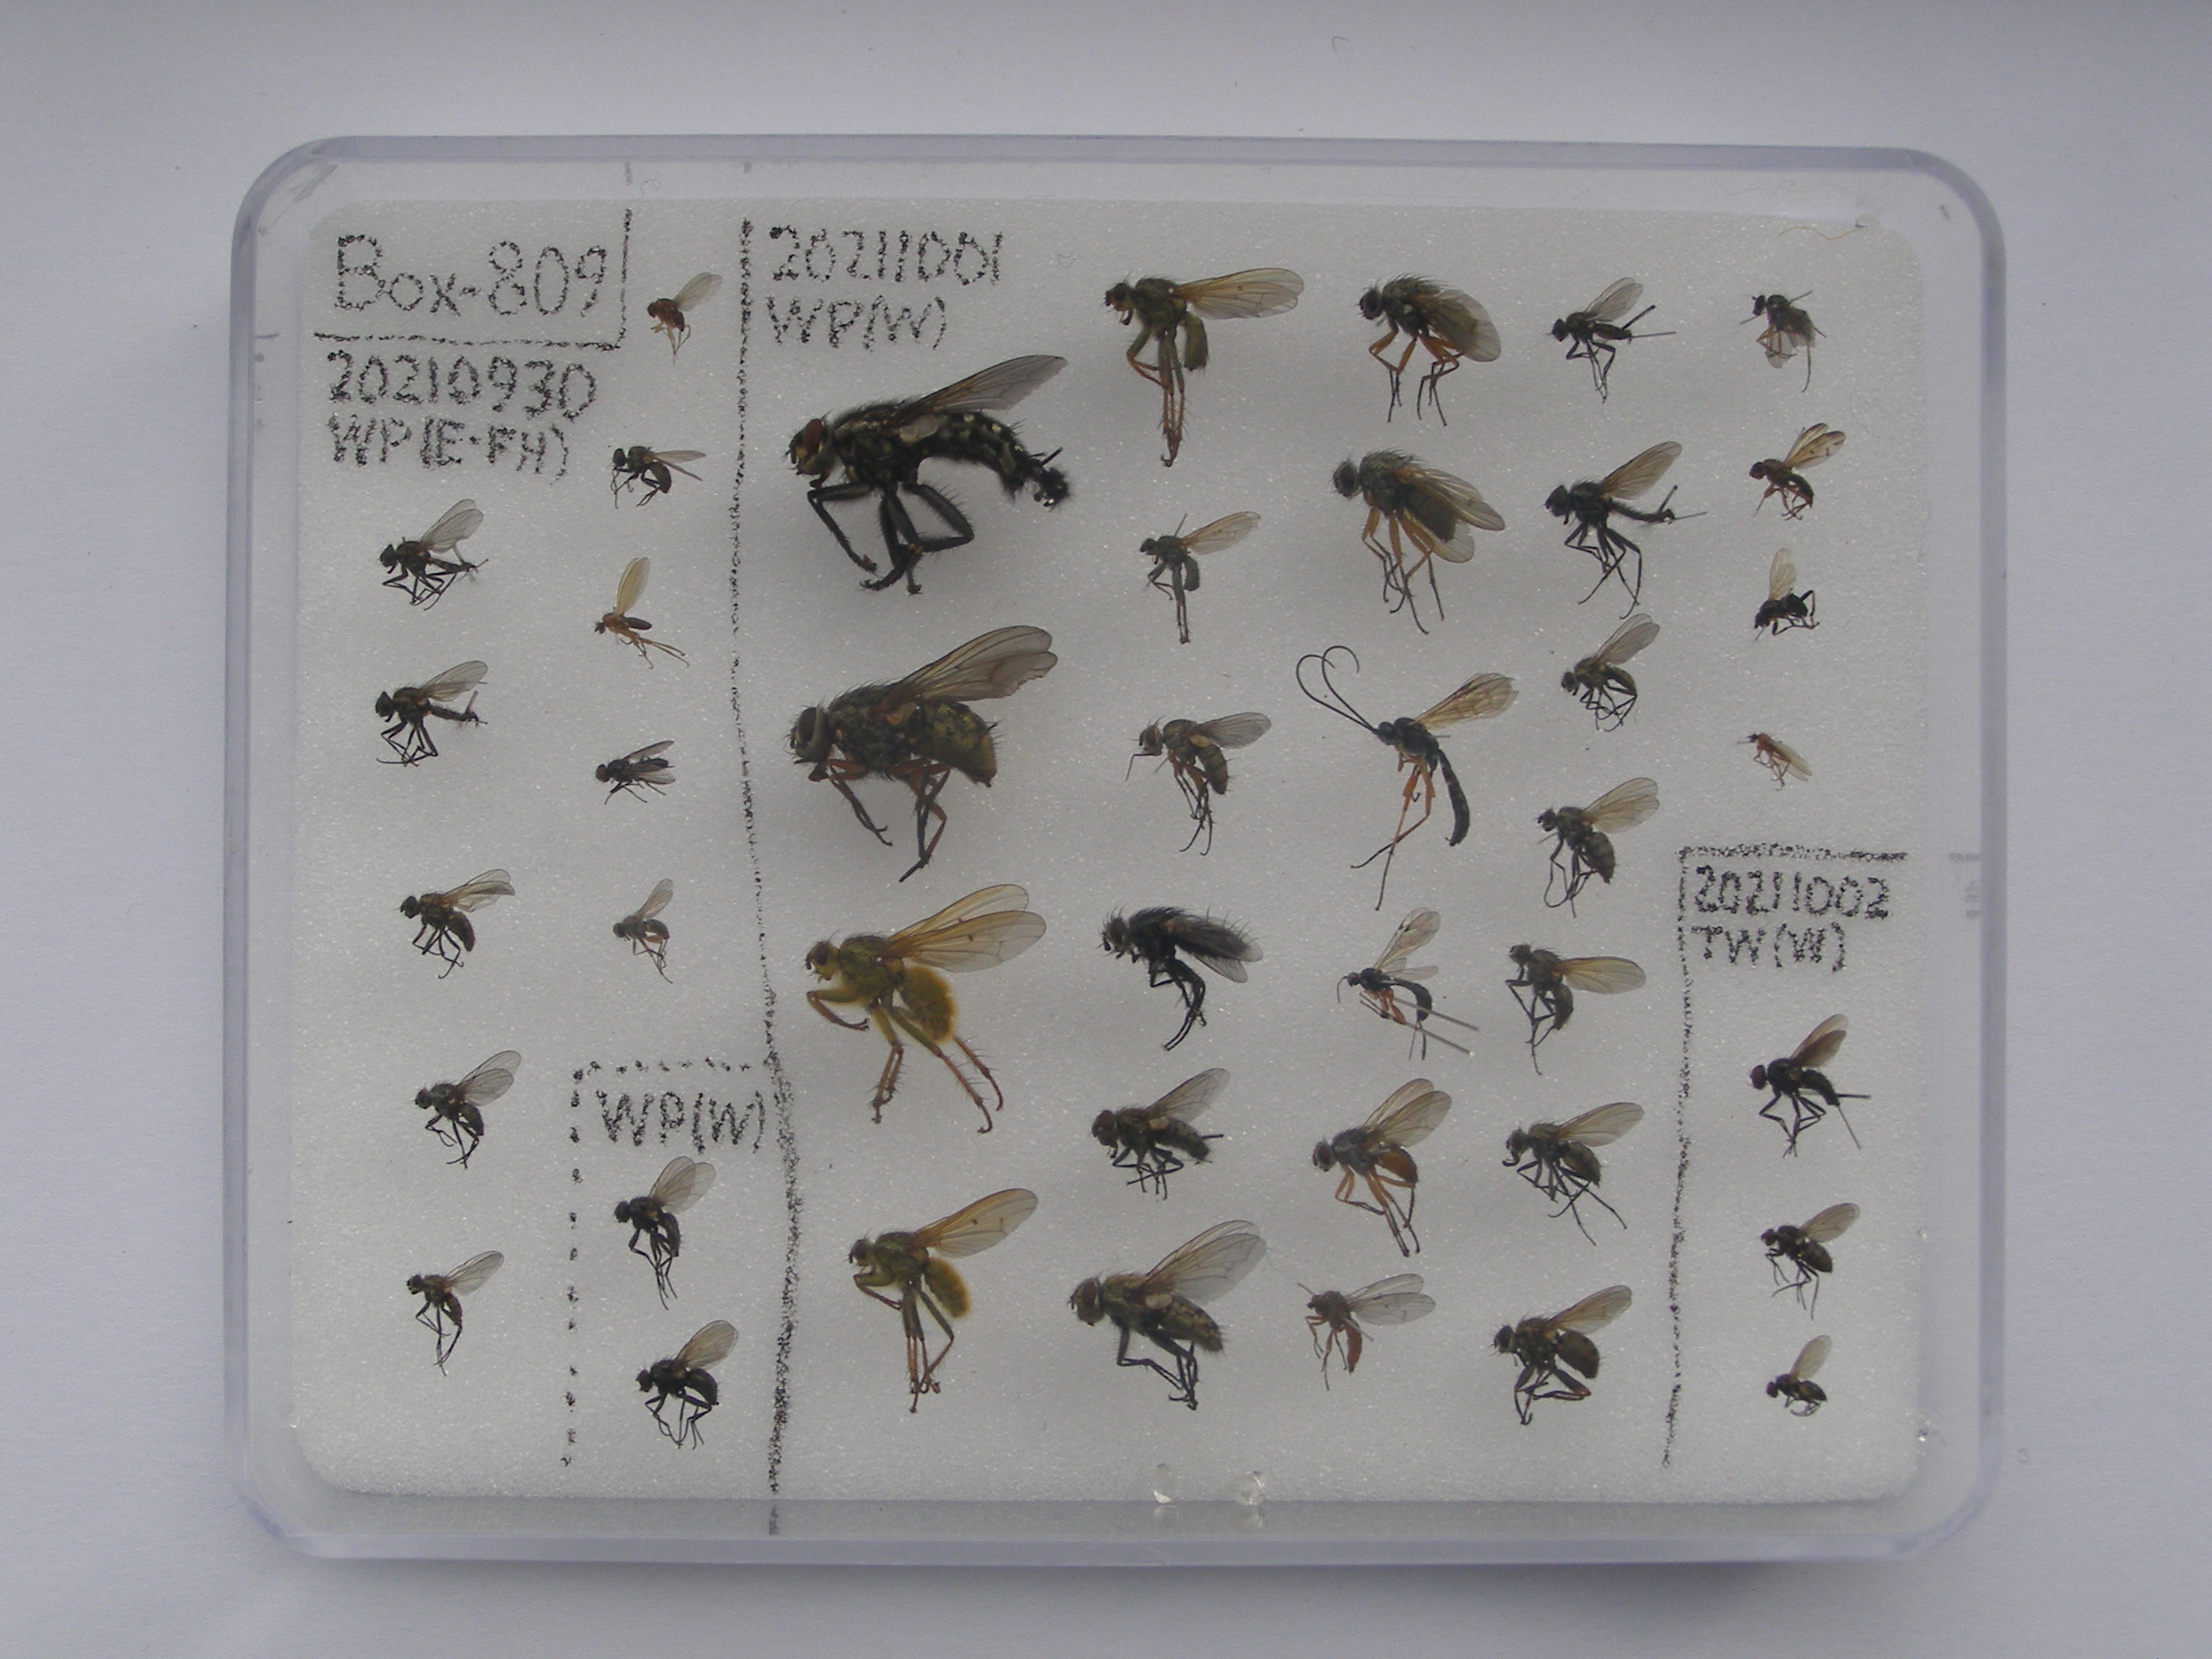 Box-809
20210930
WP(E-FH)
WP(W)
20211001
WP(W)
20211002
TW(W)